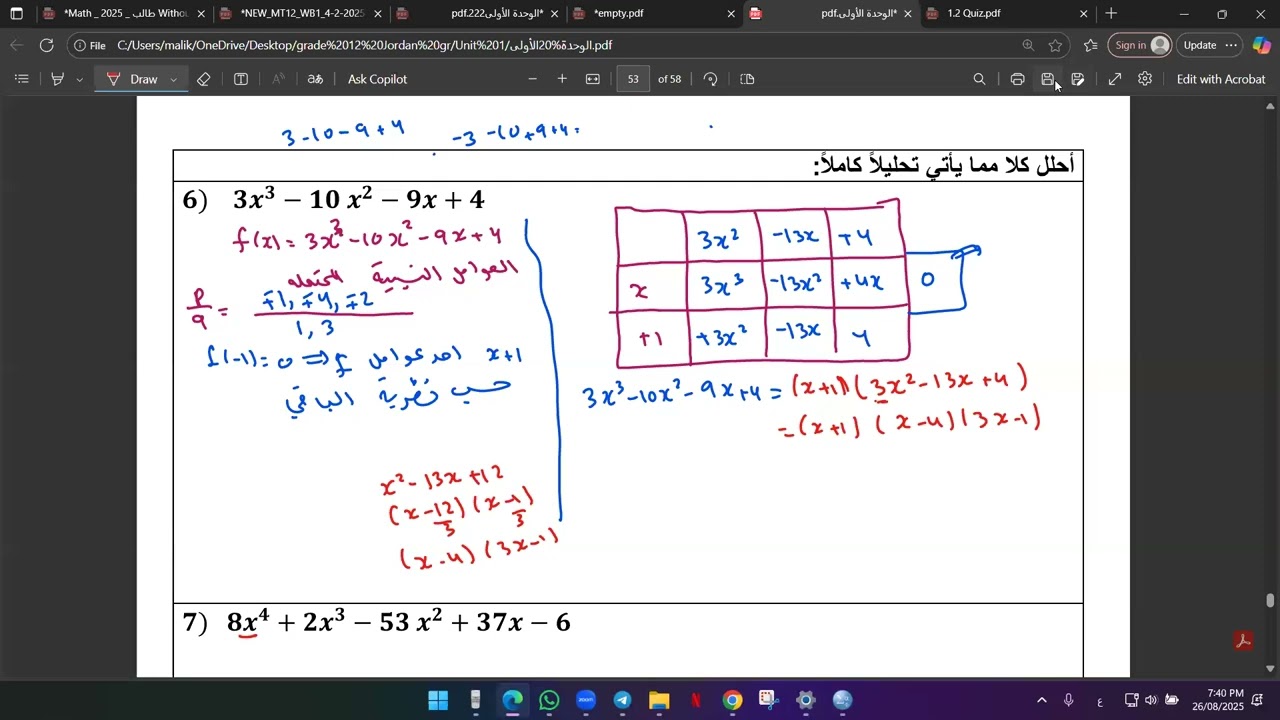 *Math _ 2025 _ طالب Withou
*NEW_MT12_WB1_4-2-2025
pdf.222الوحدة الأولى*
*empty.pdf
pdf.الوحدة الأولى*
1.2 Quiz.pdf
File C:/Users/malik/OneDrive/Desktop/grade%2012%20Jordan%20gr/Unit%201/الوحدة%20الأولى.pdf
Sign in
Update
Draw
Ask Copilot
53 of 58
Edit with Acrobat
3-10-9+4 -3-10+9+4=
أحلل كلا مما يأتي تحليلاً كاملاً:
6) 3x³ − 10 x² − 9x + 4
f(x) = 3x³ -10x² -9x+4
العوامل النسبية المحتملة
p/q = ∓1, ∓4, ∓2 / 1, 3
f(-1) = 0 ⇒ f احد عوامل x+1
حسب نظرية الباقي
x² -13x +12
(x-12/3)(x-1/3)
(x-4)(3x-1)
3x² -13x +4
x 3x³ -13x² +4x 0
+1 +3x² -13x 4
3x³-10x²-9x+4 = (x+1)(3x²-13x+4)
= (x+1) (x-4)(3x-1)
7) 8x⁴ + 2x³ − 53 x² + 37x − 6
ع
7:40 PM
26/08/2025